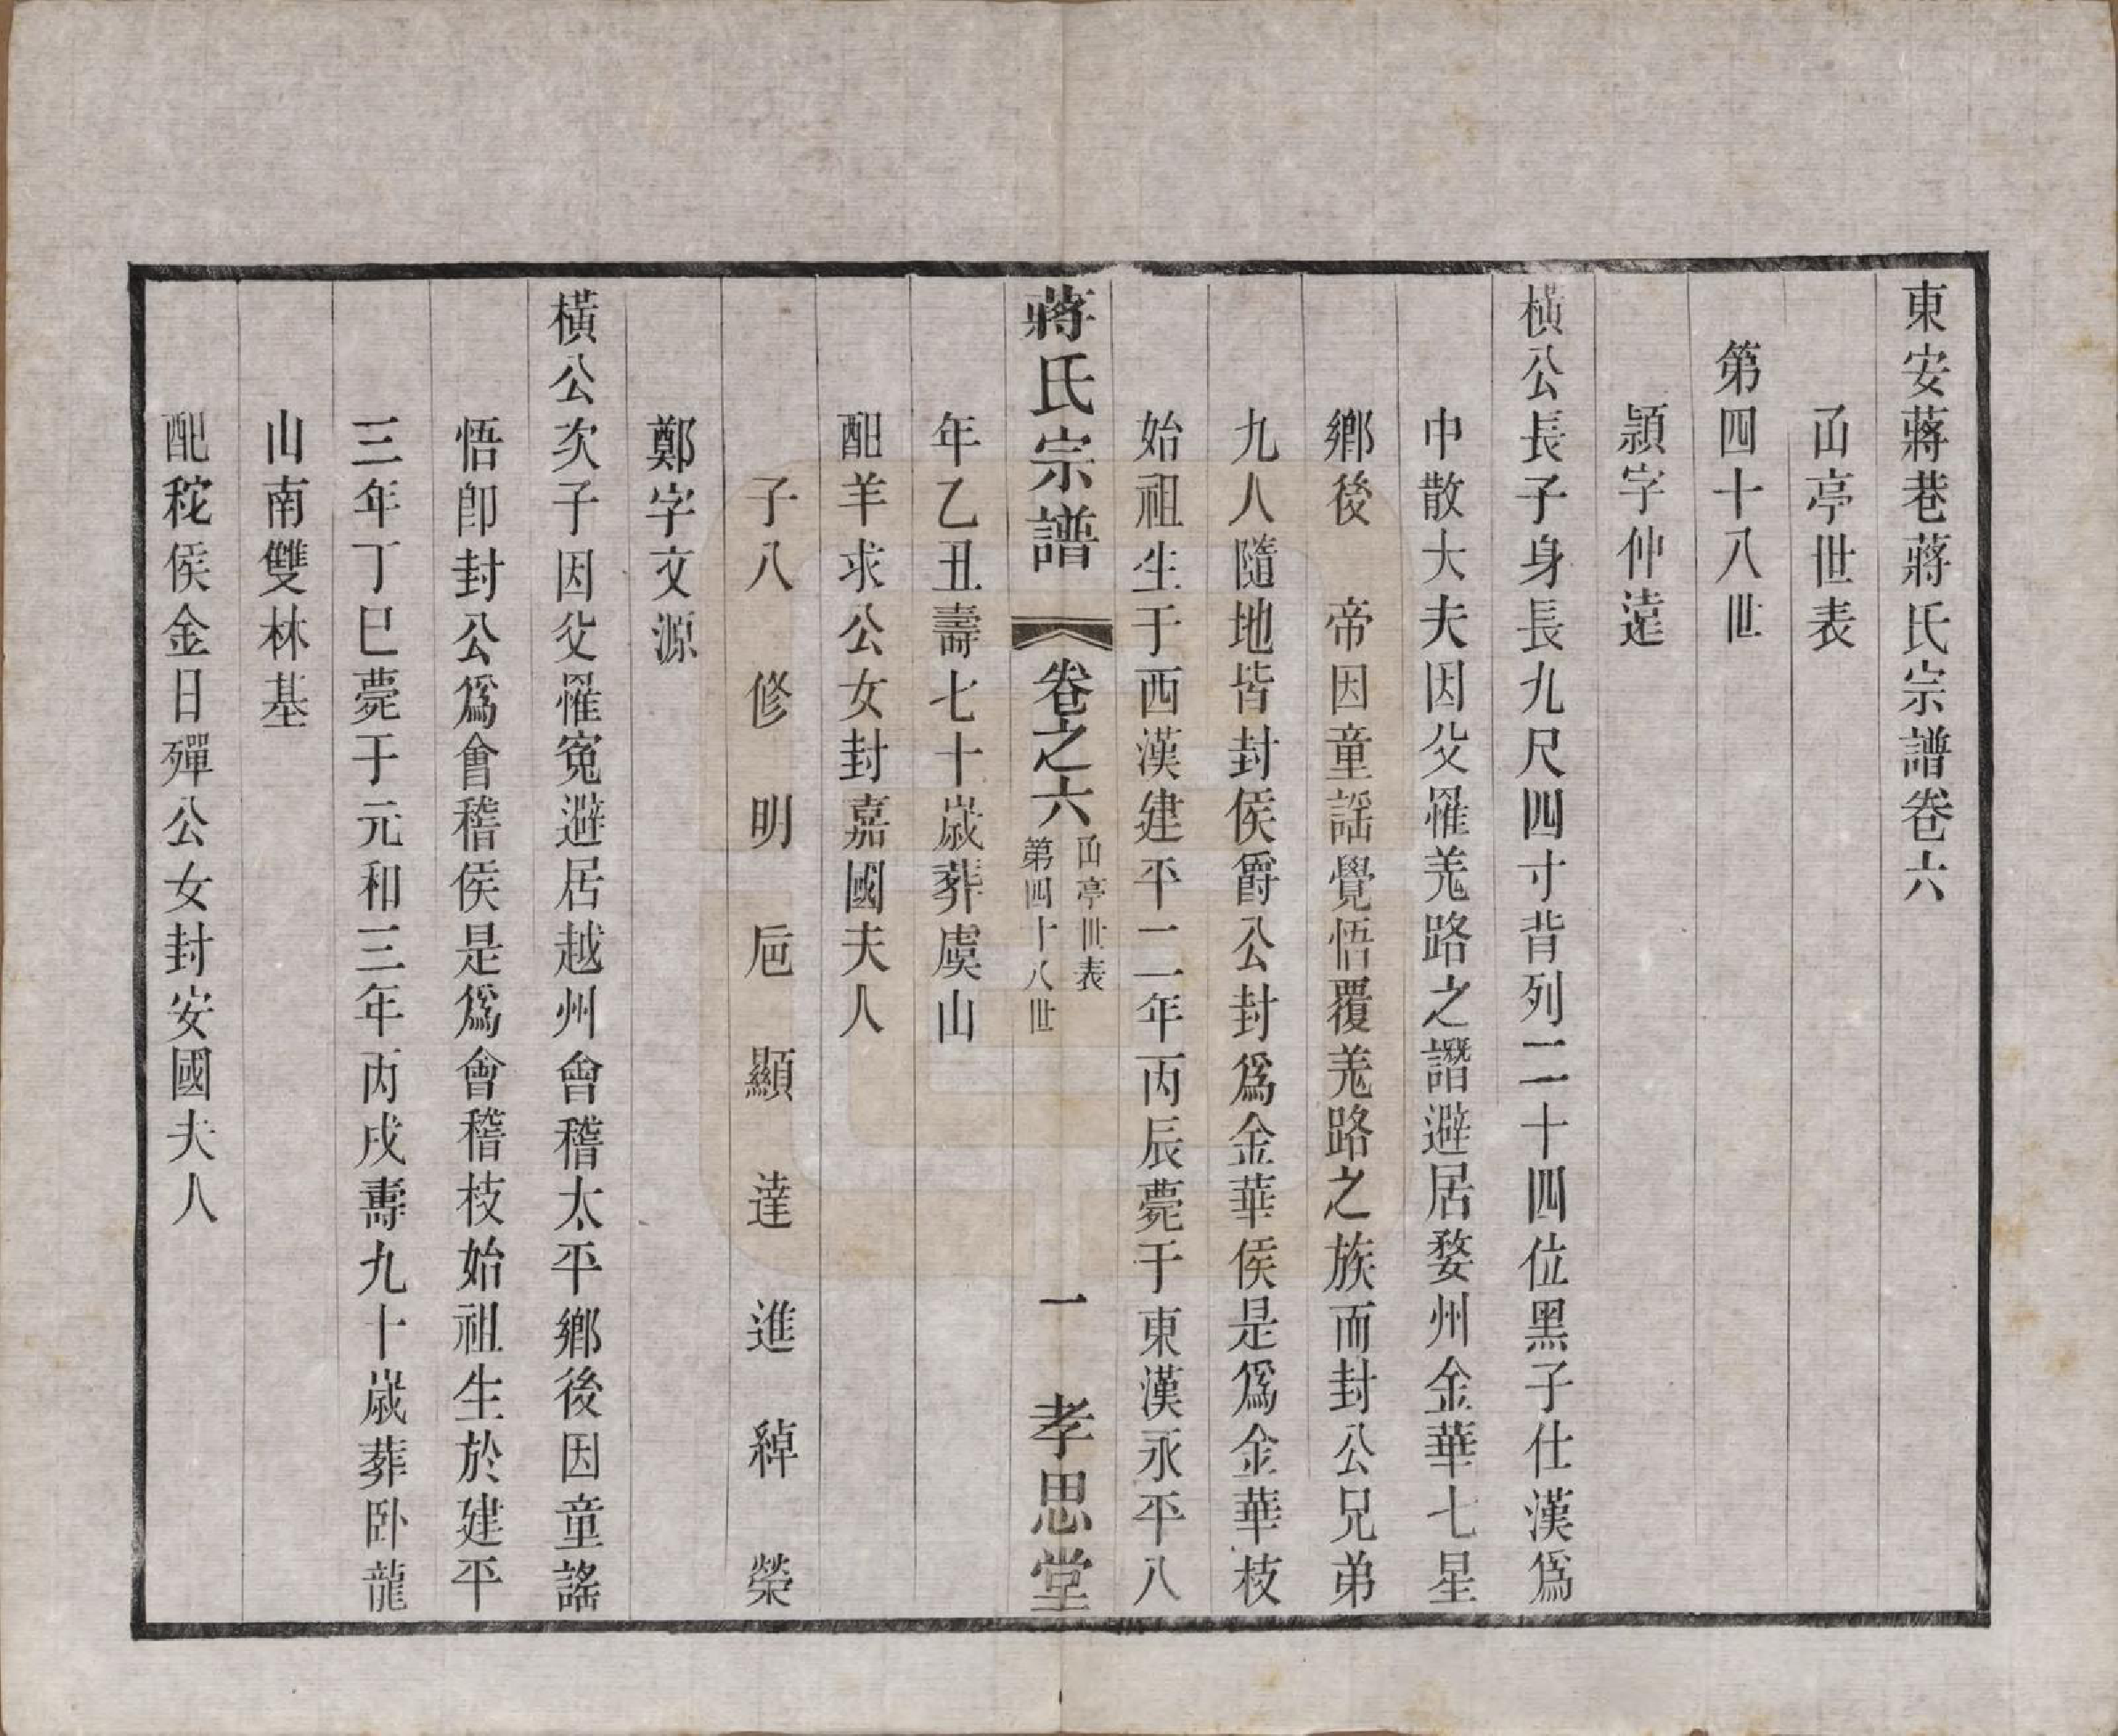 東安蔣巷蔣氏宗譜卷六
㐭亭世表
第四十八世
潁字仲遠
橫公長子身長九尺四寸背列二十四位黑子仕漢爲
中散大夫因父罹羌路之譖避居婺州金華七星
鄉後　帝因童謡覺悟覆羌路之族而封公兄弟
九人隨地皆封侯爵公封爲金華侯是爲金華枝
始祖生于西漢建平二年丙辰薨于東漢永平八
蔣氏宗譜　卷之六　㐭亭世表　第四十八世　一　孝思堂
年乙丑壽七十歲葬虞山
配羊求公女封嘉國夫人
子八　修　明　巵　顯　達　進　綽　榮
鄭字文源
橫公次子因父罹寃避居越州會稽太平鄉後因童謠
悟卽封公爲會稽侯是爲會稽枝始祖生於建平
三年丁巳薨于元和三年丙戌壽九十歲葬卧龍
山南雙林基
配秺侯金日殫公女封安國夫人